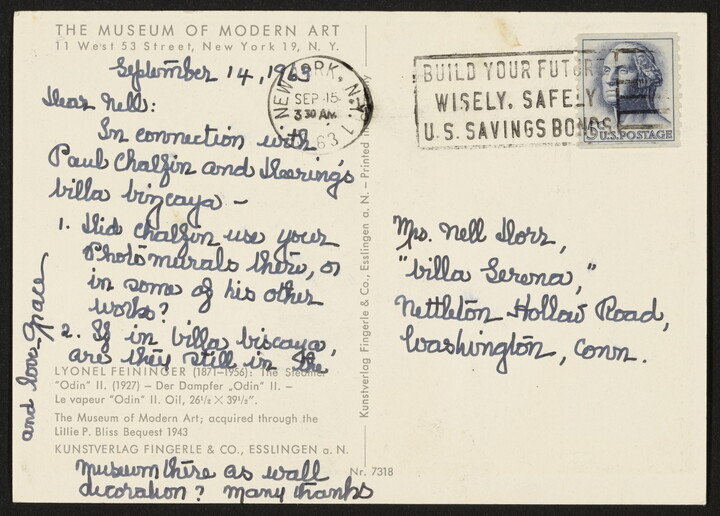 THE MUSEUM OF MODERN ART
11 West 53 Street, New York 19, N. Y.
September 14, 1963
Dear Nell:
In connection with
Paul Chalfin and Deering's
Villa Vizcaya –
1. Did Chalfin use your
Photomurals there, or
in some of his other
works?
2. If in Villa Viscaya,
are they still in the
LYONEL FEININGER (1871–1956): The Steamer
"Odin" II. (1927) – Der Dampfer „Odin" II. –
Le vapeur "Odin" II. Oil, 26½ × 39½".
The Museum of Modern Art; acquired through the
Lillie P. Bliss Bequest 1943
KUNSTVERLAG FINGERLE & CO., ESSLINGEN a. N.
museum there as wall
decoration? Many thanks
and love, Grace
Nr. 7318
Kunstverlag Fingerle & Co., Esslingen a. N. – Printed in
NEW YORK, N.Y. 1
SEP 15
3 30 AM
63
BUILD YOUR FUTURE
WISELY, SAFELY
U.S. SAVINGS BONDS
U.S. POSTAGE
Mrs. Nell Dorr,
"Villa Serena,"
Nettleton Hollow Road,
Washington, Conn.